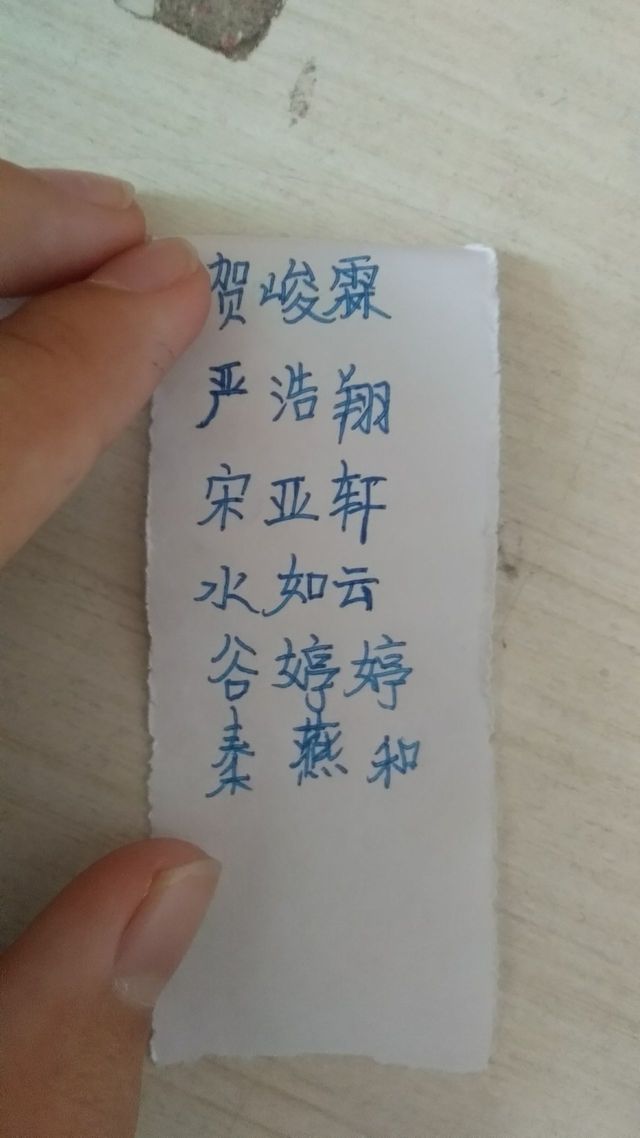 贺峻霖
严浩翔
宋亚轩
水如云
谷婷婷
秦燕和